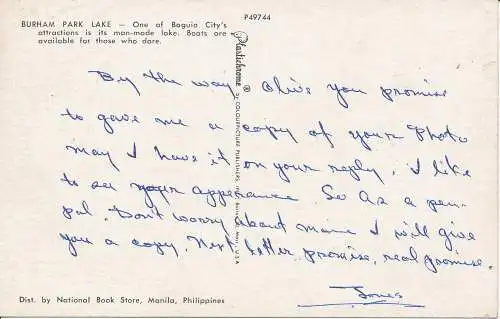 P49744
BURHAM PARK LAKE — One of Baguio City's
attractions is its man-made lake. Boats are
available for those who dare.
Plastichrome ®
BY COLOURPICTURE PUBLISHERS, INC., BOSTON, MASS., U.S.A.
By the way, Olive you promise
to gave me a copy of your Photo
may I have it on your reply, I like
to see your apperance. So As a pen-
pal. Don't worry about mine I will give
you a copy. Next letter promise, real promise.
Jones
Dist. by National Book Store, Manila, Philippines